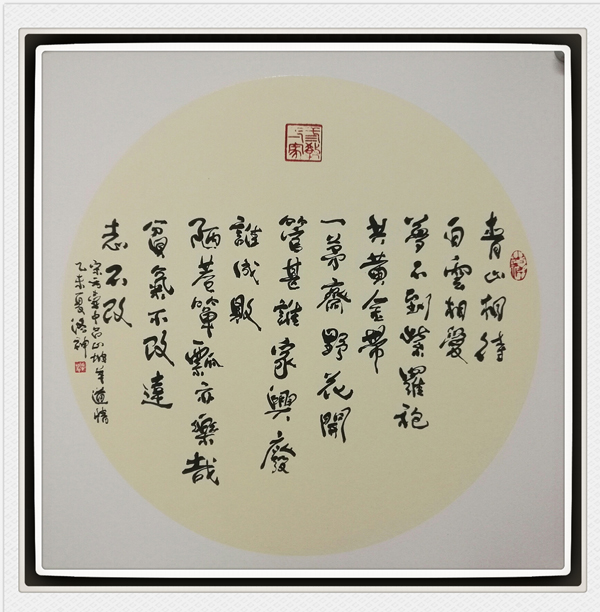 青山相待
白雲相愛
夢不到紫羅袍
共黃金帶
一茅齋野花開
管甚誰家興廢
誰成敗
陋巷簞瓢亦樂哉
貧氣不改達
志不改
宋方壺中呂山坡羊道情
乙未夏